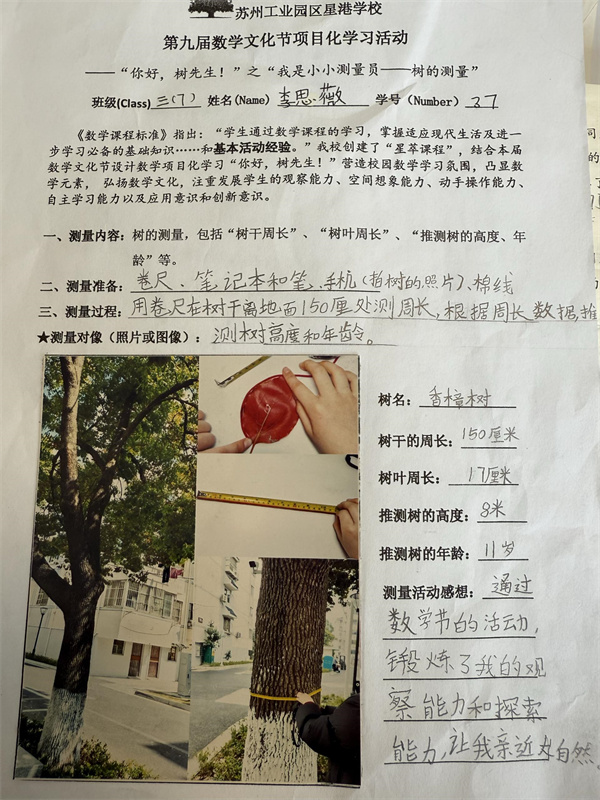 苏州工业园区星港学校
第九届数学文化节项目化学习活动
——“你好，树先生！”之“我是小小测量员——树的测量”
班级(Class) 三(7) 姓名(Name) 李思薇 学号(Number) 37
《数学课程标准》指出：“学生通过数学课程的学习，掌握适应现代生活及进一
步学习必备的基础知识……和基本活动经验。”我校创建了“星萃课程”，结合本届
数学文化节设计数学项目化学习“你好，树先生！”营造校园数学学习氛围，凸显数
学元素，弘扬数学文化，注重发展学生的观察能力、空间想象能力、动手操作能力、
自主学习能力以及应用意识和创新意识。
一、测量内容：树的测量，包括“树干周长”、“树叶周长”、“推测树的高度、年
龄”等。
二、测量准备：卷尺、笔记本和笔、手机（拍树的照片）、棉线
三、测量过程：用卷尺在树干离地面150厘处测周长，根据周长数据，推
★测量对像（照片或图像）：测树高度和年龄。
树名：香樟树
树干的周长：150厘米
树叶周长：17厘米
推测树的高度：8米
推测树的年龄：11岁
测量活动感想：通过
数学节的活动，
锻炼了我的观
察能力和探索
能力，让我亲近大自然。